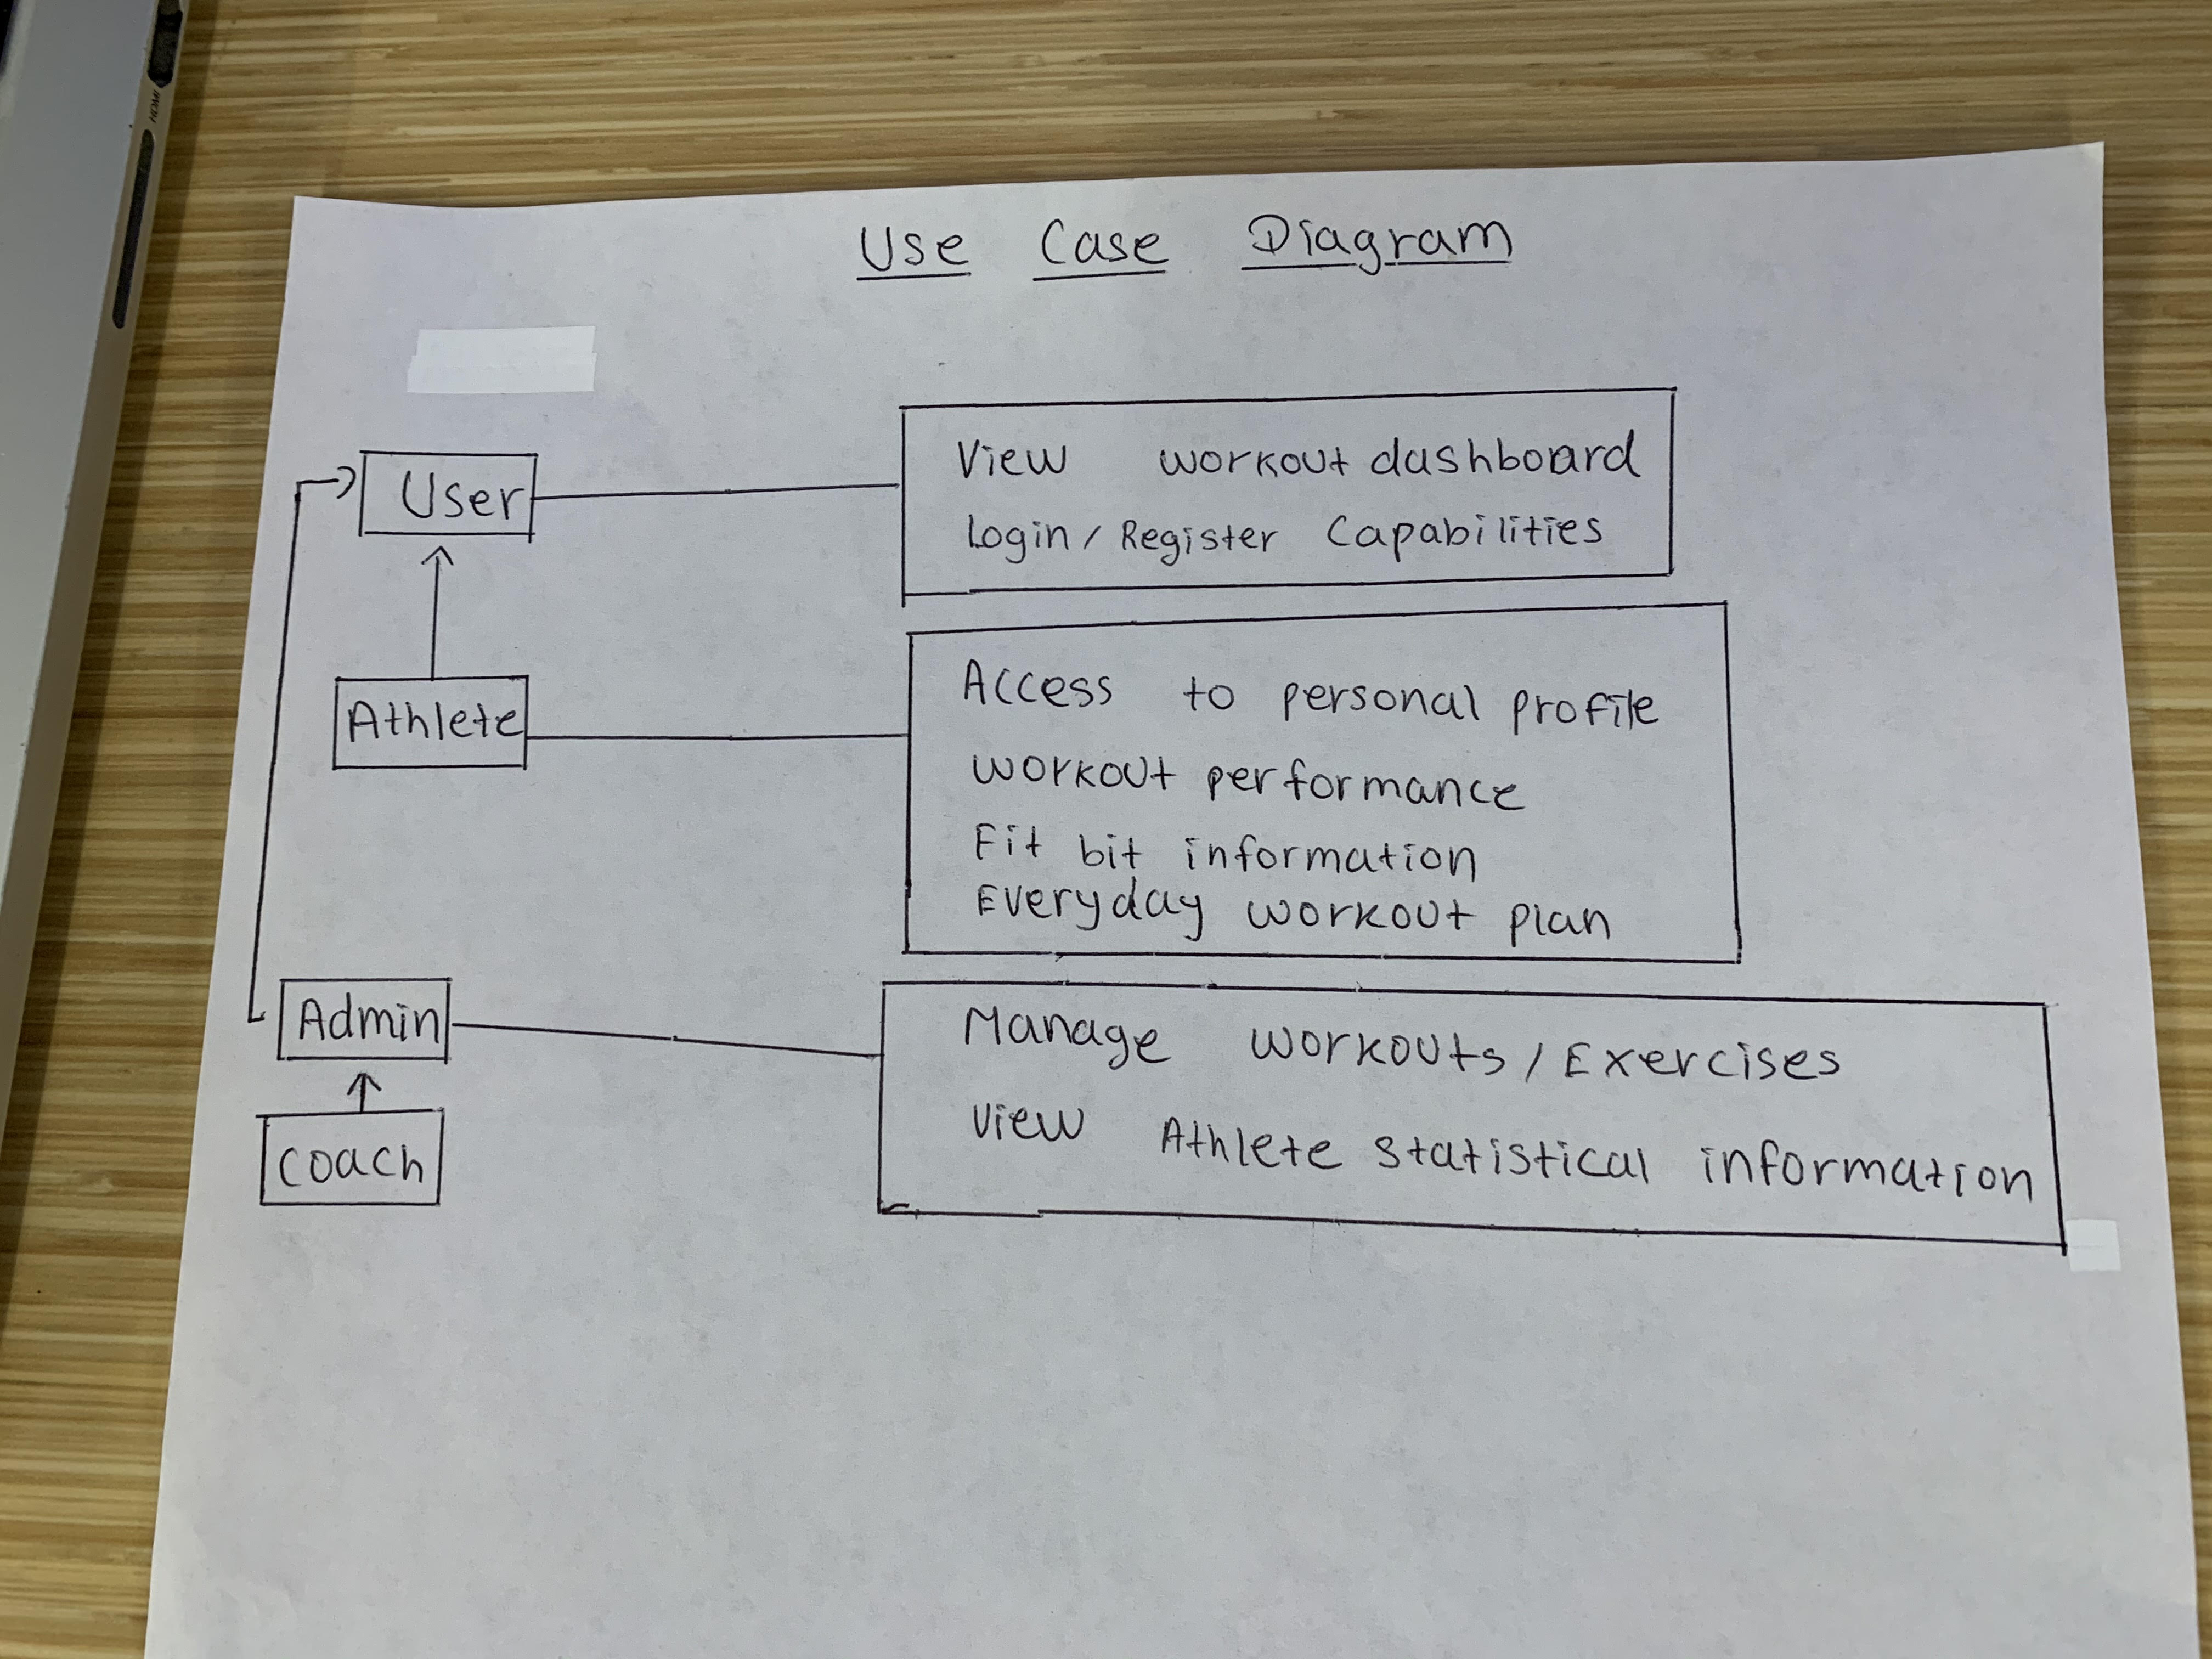 HDMI
Use Case Diagram
User
View workout dashboard
Login / Register Capabilities
Athlete
Access to personal profile
workout performance
Fit bit information
Everyday workout plan
Admin
Manage workouts / Exercises
View Athlete statistical information
coach